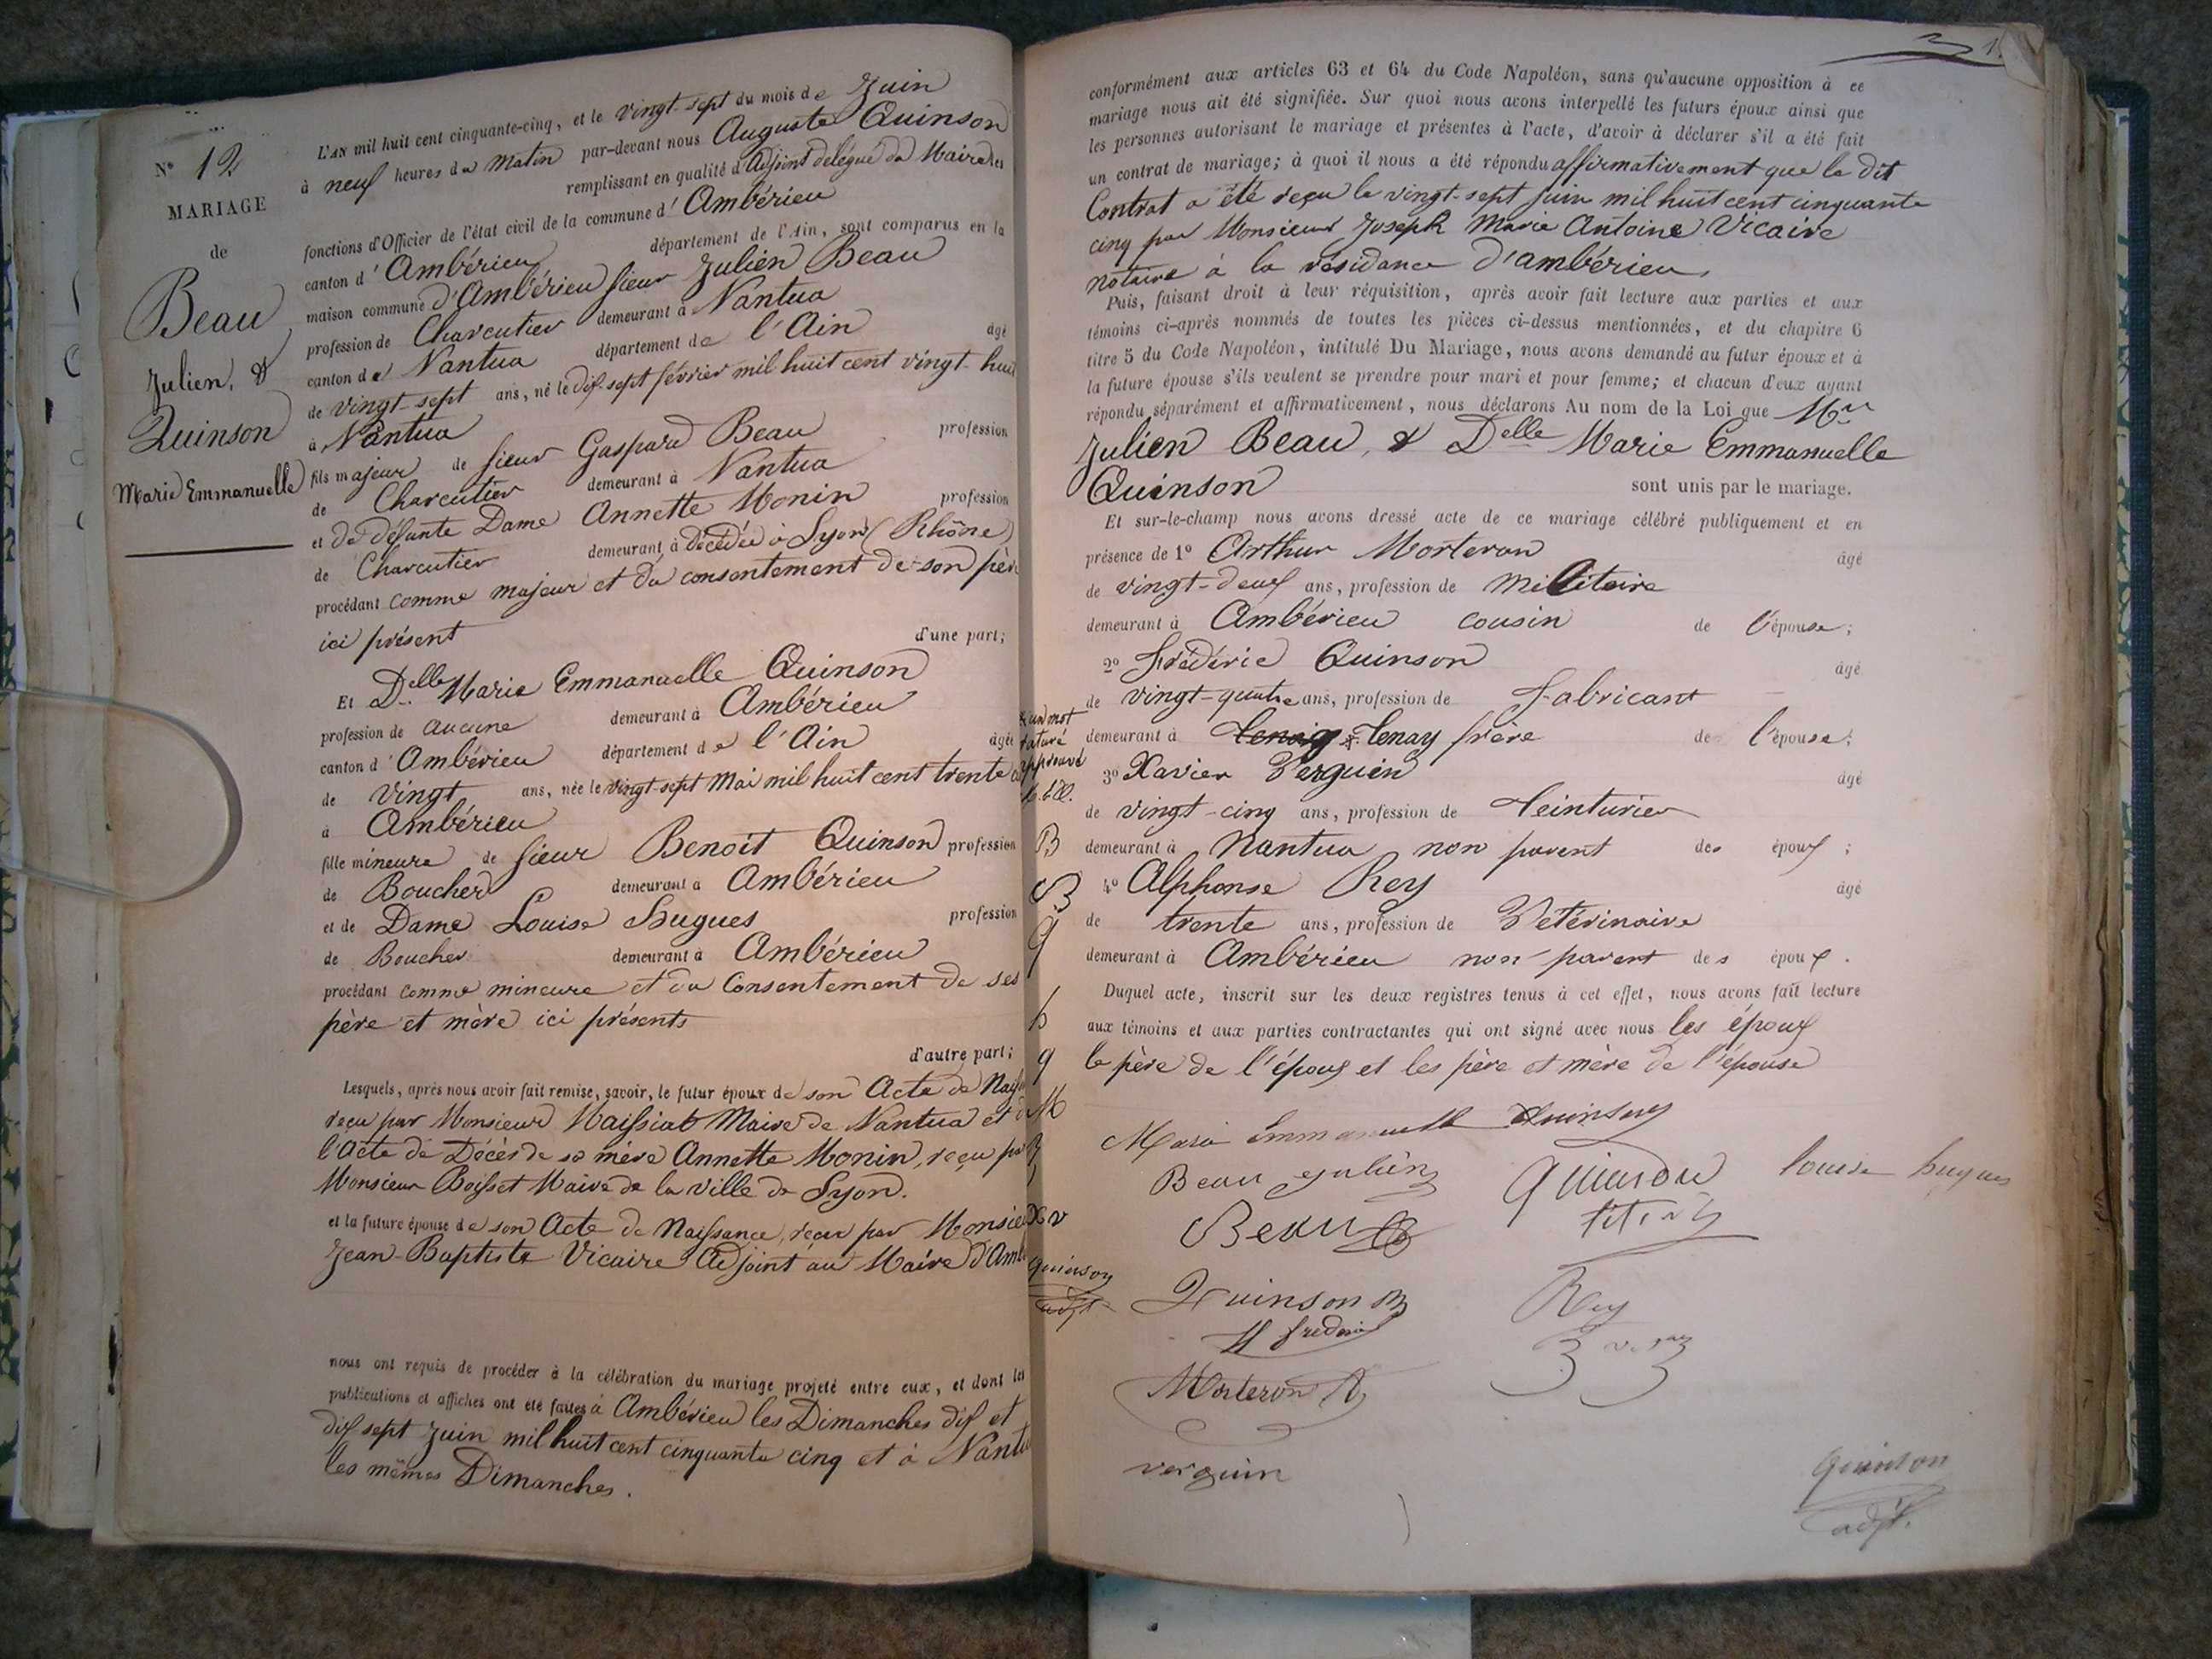 N° 12
MARIAGE
de
Beau
Julien, &
Quinson
Marie Emmanuelle
L'AN mil huit cent cinquante-cinq, et le vingt-sept du mois de Juin
à neuf heures du matin par-devant nous Auguste Quinson
remplissant en qualité d'Adjoint délégué du Maire les
fonctions d'Officier de l'état civil de la commune d'Ambérieu
canton d'Ambérieu département de l'Ain, sont comparus en la
maison commune d'Ambérieu sieur Julien Beau
profession de Charcutier demeurant à Nantua
canton de Nantua département de l'Ain âgé
de vingt-sept ans, né le dix-sept février mil huit cent vingt-huit
à Nantua
fils majeur de sieur Gaspard Beau profession
de Charcutier demeurant à Nantua
et de défunte Dame Annette Monin profession
de Charcutier demeurant à décédée à Lyon (Rhône)
procédant comme majeur et du consentement de son père
ici présent d'une part;
Et Delle Marie Emmanuelle Quinson
profession de aucune demeurant à Ambérieu
canton d'Ambérieu département de l'Ain âgée
de vingt ans, née le vingt-sept Mai mil huit cent trente
à Ambérieu
fille mineure de sieur Benoit Quinson profession
de Boucher demeurant à Ambérieu
et de Dame Louise Hugues profession
de Boucher demeurant à Ambérieu
procédant comme mineure et du Consentement de ses
père et mère ici présents
d'autre part;
Lesquels, après nous avoir fait remise, savoir, le futur époux de son Acte de
reçu par Monsieur Maissiat Maire de Nantua et
l'Acte de Décès de sa mère Annette Monin, reçu par
Monsieur Boisset Maire de la ville de Lyon.
et la future épouse de son Acte de Naissance, reçu par Monsieur
Jean-Baptiste Vicaire Adjoint au Maire d'Amb
nous ont requis de procéder à la célébration du mariage projeté entre eux, et dont les
publications et affiches ont été faites à Ambérieu les Dimanches dix et
dix sept Juin mil huit cent cinquante cinq et à Nantua
les mêmes Dimanches.
conformément aux articles 63 et 64 du Code Napoléon, sans qu'aucune opposition à ce
mariage nous ait été signifiée. Sur quoi nous avons interpellé les futurs époux ainsi que
les personnes autorisant le mariage et présentes à l'acte, d'avoir à déclarer s'il a été fait
un contrat de mariage; à quoi il nous a été répondu affirmativement que le dit
Contrat a été reçu le vingt-sept juin mil huit cent cinquante
cinq par Monsieur Joseph Marie Antoine Vicaire
notaire à la résidance d'ambérieu.
Puis, faisant droit à leur réquisition, après avoir fait lecture aux parties et aux
témoins ci-après nommés de toutes les pièces ci-dessus mentionnées, et du chapitre 6
titre 5 du Code Napoléon, intitulé Du Mariage, nous avons demandé au futur époux et à
la future épouse s'ils veulent se prendre pour mari et pour femme; et chacun d'eux ayant
répondu séparément et affirmativement, nous déclarons Au nom de la Loi que Mr
Julien Beau, & Delle Marie Emmanuelle
Quinson sont unis par le mariage.
Et sur-le-champ nous avons dressé acte de ce mariage célébré publiquement et en
présence de 1° Arthur Morteron âgé
de vingt-deux ans, profession de Militaire
demeurant à Ambérieu cousin de l'épouse;
2° Frédéric Quinson âgé
de vingt-quatre ans, profession de Fabricant
demeurant à Tenay * Tenay frère de l'épouse;
* un mot
raturé
approuvé
3° Xavier Verguin âgé
de vingt-cinq ans, profession de Teinturier
demeurant à Nantua non parent des époux;
4° Alphonse Rey âgé
de trente ans, profession de Vetérinaire
demeurant à Ambérieu non parent des époux.
Duquel acte, inscrit sur les deux registres tenus à cet effet, nous avons fait lecture
aux témoins et aux parties contractantes qui ont signé avec nous les époux
le père de l'époux et les père et mère de l'épouse
Marie Emmanuelle Quinson
Beau Julien
louise hugues
Beau
Quinson
frederic
Rey
Morteron A
verguin
quinson
adjt
quinson
adjt.